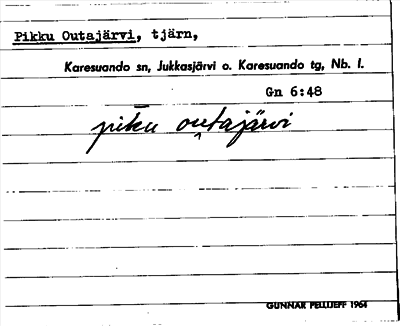 Pikku Outajärvi, tjärn,
Karesuando sn, Jukkasjärvi o. Karesuando tg, Nb. l.
Gn 6:48
piku outajärvi
GUNNAR PELLIJEFF 1964